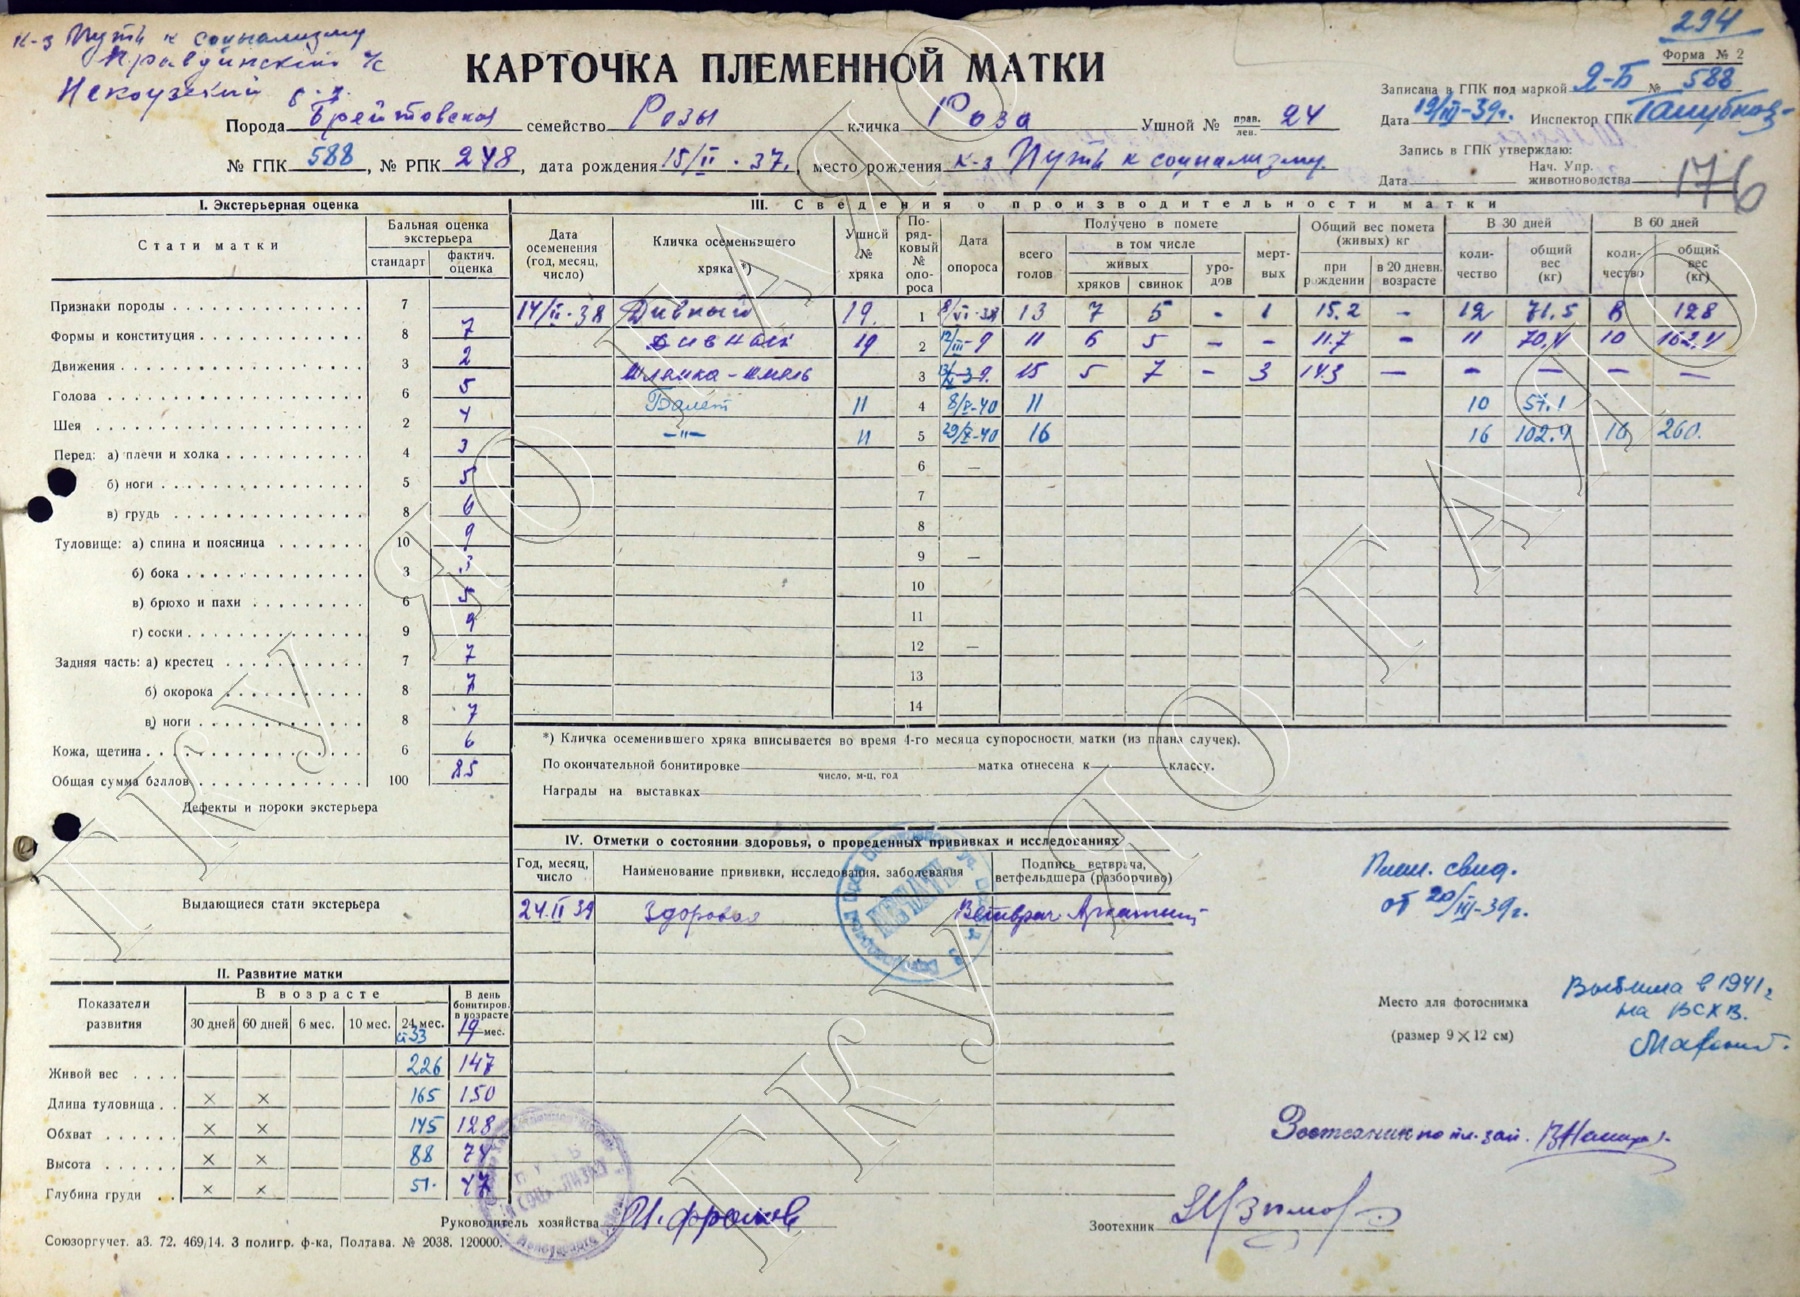 к-з Путь к социализму
Правдинский с/с
Некоузский р-н
294
Форма № 2
КАРТОЧКА ПЛЕМЕННОЙ МАТКИ
Записана в ГПК под маркой Я-Б № 588
Дата 19/III-39г. Инспектор ГПК
Порода Брейтовская семейство Розы кличка Роза Ушной № прав. лев. 24
Запись в ГПК утверждаю:
Нач. Упр. животноводства
Дата
176
№ ГПК 588, № РПК 248, дата рождения 15/II-37, место рождения к-з Путь к социализму.
I. Экстерьерная оценка
Стати матки Бальная оценка экстерьера
стандарт фактич. оценка
Признаки породы 7
Формы и конституция 8 7
Движения 3 2
Голова 6 5
Шея 2 4
Перед: а) плечи и холка 4 3
б) ноги 5 5
в) грудь 8 6
Туловище: а) спина и поясница 10 9
б) бока 3 3
в) брюхо и пахи 6 5
г) соски 9 9
Задняя часть: а) крестец 7 7
б) окорока 8 7
в) ноги 8 7
Кожа, щетина 6 6
Общая сумма баллов 100 85
Дефекты и пороки экстерьера
Выдающиеся стати экстерьера
II. Развитие матки
Показатели развития В возрасте В день бонитиров. в возрасте 19 мес.
30 дней 60 дней 6 мес. 10 мес. 24 мес.
33
Живой вес 226 147
Длина туловища × × 165 150
Обхват × × 145 128
Высота × × 88 74
Глубина груди × × 51 47
III. Сведения о производительности матки
Дата осеменения (год, месяц, число) Кличка осеменившего хряка *) Ушной № хряка Порядковый № опороса Дата опороса Получено в помете Общий вес помета (живых) кг В 30 дней В 60 дней
всего голов в том числе живых хряков свинок уродов мертвых при рождении в 20 дневн. возрасте количество общий вес (кг) количество общий вес (кг)
14/II-38 Дивный 19 1 8/VI-38 13 7 5 - 1 15.2 - 12 71.5 8 128
Дивный 19 2 12/III-9 11 6 5 - - 11.7 - 11 70,4 10 162.4
3 15 5 7 - 3 14.3 - - - - -
Балет 11 4 8/V-40 11 10 57.1
-"- 11 5 29/X-40 16 16 102.4 16 260.
6 —
7
8
9 —
10
11
12 —
13
14
*) Кличка осеменившего хряка вписывается во время 4-го месяца супоросности матки (из плана случек).
По окончательной бонитировке матка отнесена к классу.
число, м-ц, год
Награды на выставках
IV. Отметки о состоянии здоровья, о проведенных прививках и исследованиях
Год, месяц, число Наименование прививки, исследования, заболевания Подпись ветврача, ветфельдшера (разборчиво)
24.II 39 Здоровая Ветврач
ПЕЧАТЬ
Плем. свид.
от 20/III-39г.
Место для фотоснимка
(размер 9×12 см)
Выбыла в 1941г
на ВСХВ.
Зоотехник по пл. зап.
Руководитель хозяйства
Зоотехник
Союзоргучет. аЗ. 72. 469/14. 3 полигр. ф-ка, Полтава. № 2038. 120000.
ГКУ ЯО ГАЯО
ГКУ ЯО ГАЯО